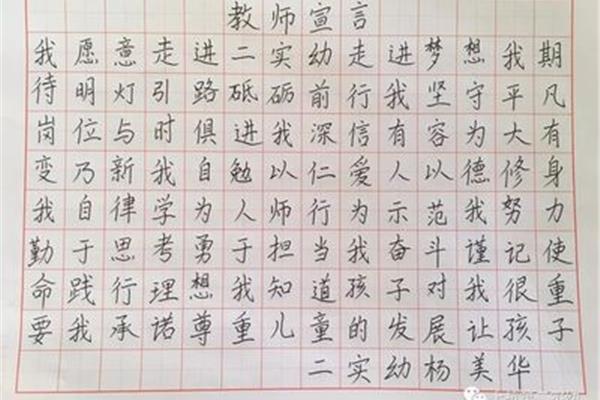 教师宣言
我愿意走进二实幼走进梦想我期
待明灯引路砥砺前行我坚守平凡
岗位与时俱进我深信有容为大有
变乃新我自勉以仁爱人以德修身
我自律学为人师行为示范我努力
勤于思考勇于担当我奋斗谨记使
命践行理想我知道孩子对我很重
要我承诺尊重儿童的发展让孩子
二实幼杨美华